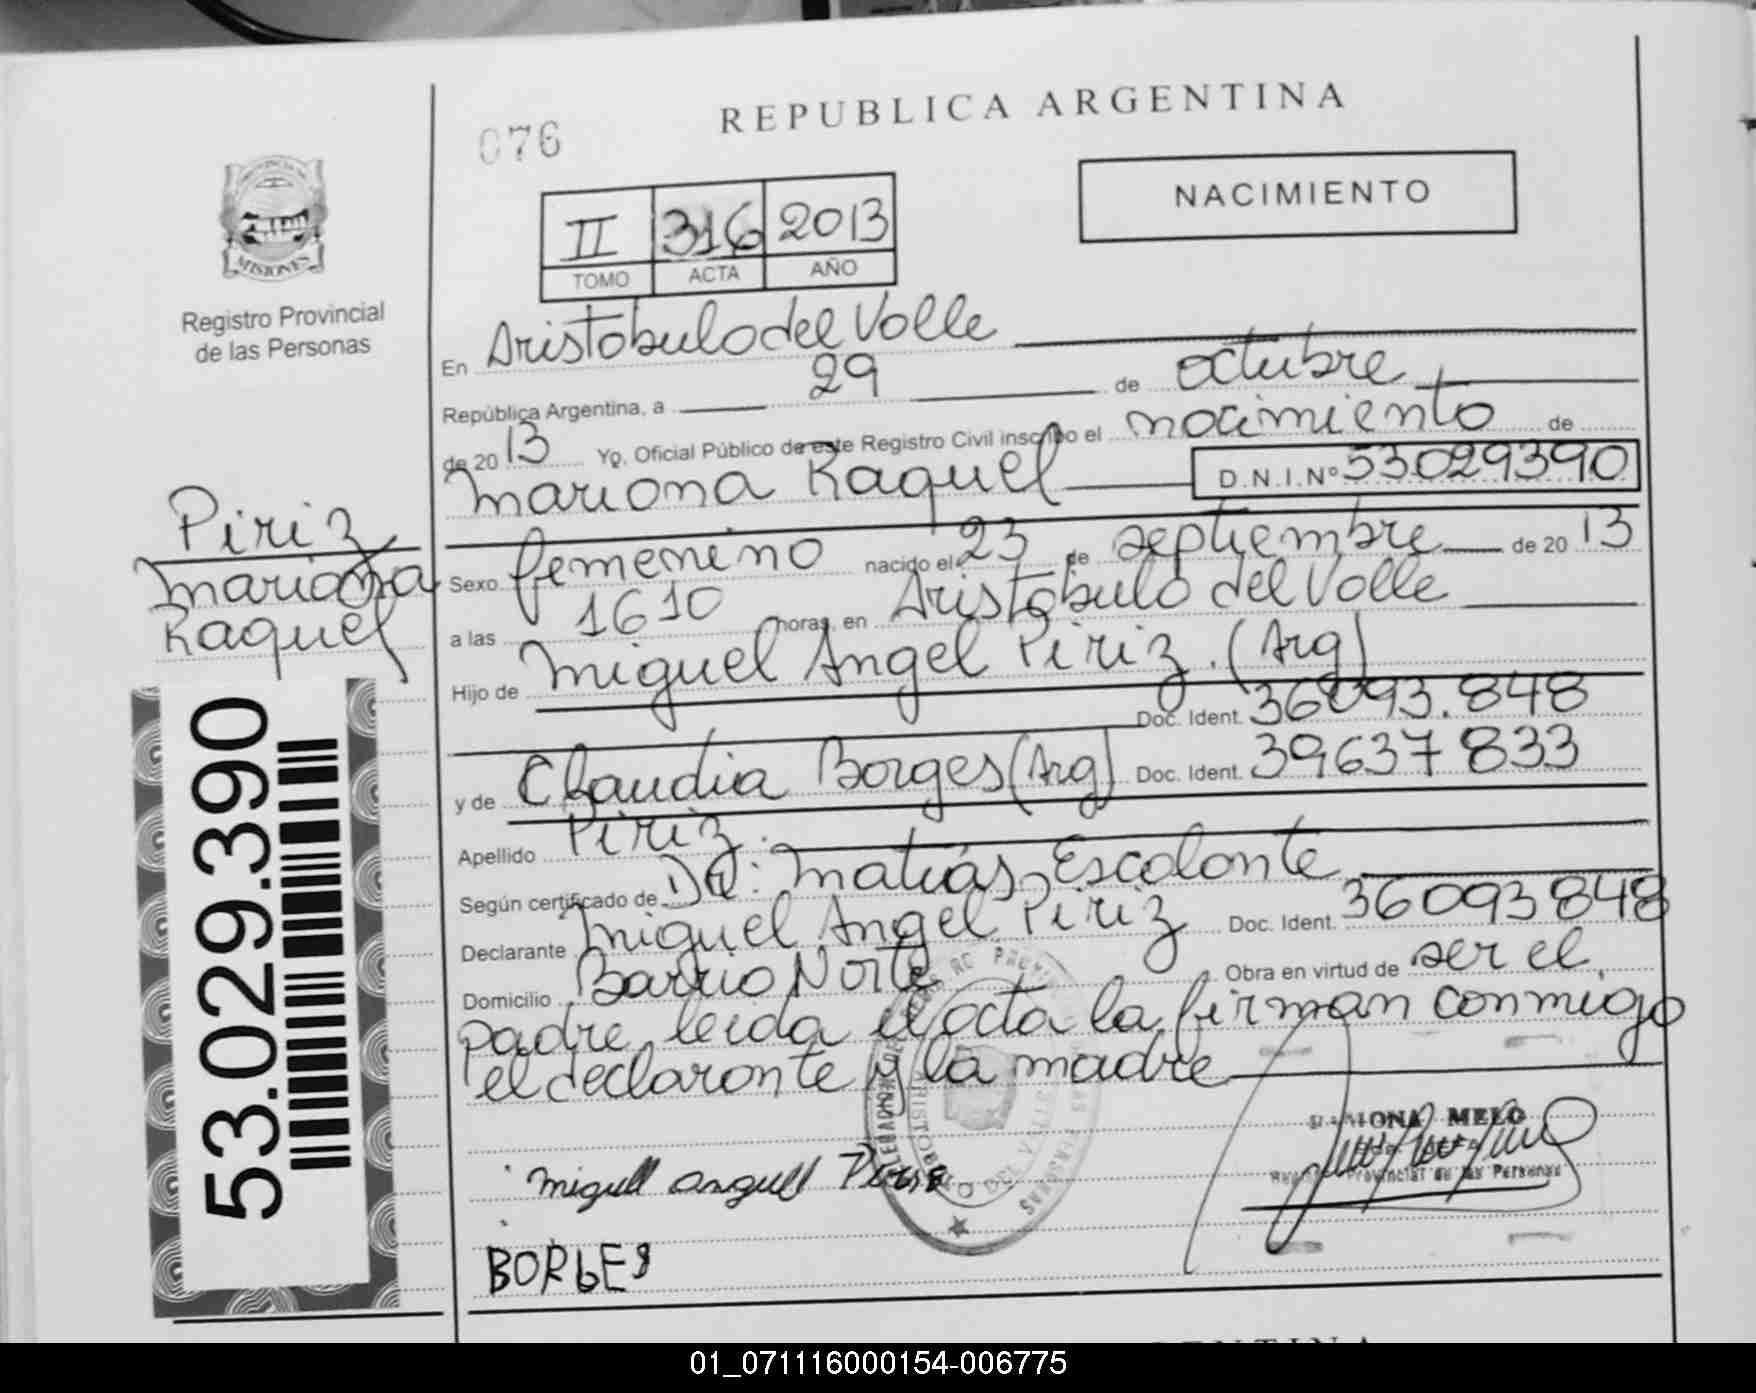 REPUBLICA ARGENTINA
076
NACIMIENTO
II 316 2013
TOMO ACTA AÑO
MISIONES
Registro Provincial
de las Personas
En Aristobulo del Valle
República Argentina, a 29 de octubre
de 2013 Yo, Oficial Público de este Registro Civil inscribo el nacimiento de
Mariana Raquel D.N.I.Nº 53029390
Piriz
Mariana
Raquel
Sexo femenino nacido el 23 de septiembre de 2013
a las 1610 horas, en Aristobulo del Valle
Hijo de Miguel Angel Piriz. (Arg)
Doc. Ident. 36093.848
y de Claudia Borges (Arg) Doc. Ident. 39637833
Apellido Piriz.
Según certificado de Dr: Matias Escalante
Declarante Miguel Angel Piriz Doc. Ident. 36093848
Domicilio Barrio Norte Obra en virtud de ser el
padre leida el acta la firman conmigo
el declarante y la madre
53.029.390
RAMONA MELO
Provincial de las Personas
miguell anguell
BORGES
01_071116000154-006775